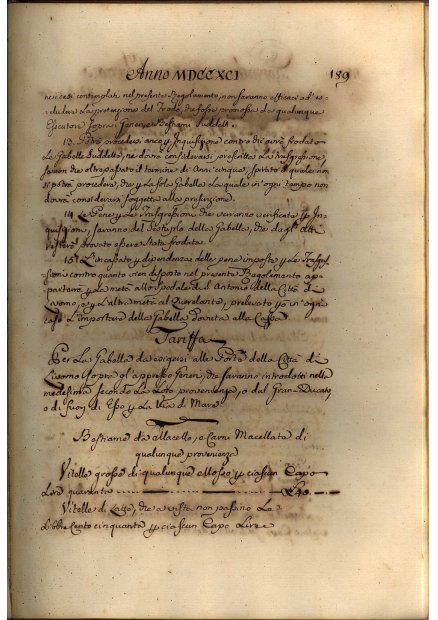 Anno MDCCXCI 189
nei casi contemplati nel presente Regolamento, non saranno efficaci ad es-
cludere la pretenzione del Frodo, che fosse promossa da qualunque
Esecutore sopra i Generi e Bestiami suddetti.
13. Potrà procedersi anco per Inquisizione contro chi averà frodato
le Gabelle suddette, ne dovrà considerarsi prescritta la Trasgressione,
se non che oltrepassato il termine di Anni cinque, spirato il quale non
si potrà procedere, che per la sola Gabella la quale in ogni tempo non
dovrà considerarsi soggetta alla prescrizione.
14. Le Pene per le Trasgressioni che verranno verificate per In-
quisizione, saranno del Sestuplo della Gabella, che dagli Atti
resterà provato essere stata frodata.
15. L'incassato per dipendenza delle pene imposte per le Trasgres-
sioni contro quanto vien disposto nel presente Regolamento ap-
parterrà per la metà allo Spedale di S. Antonio della Città di
Livorno, e per l'altra metà al Querelante, prelevato però in ogni
caso l'importare della Gabella dovuta alla Cassa.
Tariffa
Per la Gabella da esigersi alle Porte della Città di
Livorno sopra gl'appresso generi, che saranno introdotti nella
medesima secondo la loro provenienza, o dal Gran-Ducato
o di fuori di Esso per la Via di Mare
Bestiame da Macello, e Carni Macellate di
qualunque provenienza
Vitelle grosse di qualunque sesso per ciascun Capo
Lire quaranta
Vitelle di Latte, che a vista non passino Le
Libbre Cento cinquanta per ciascun Capo Lire